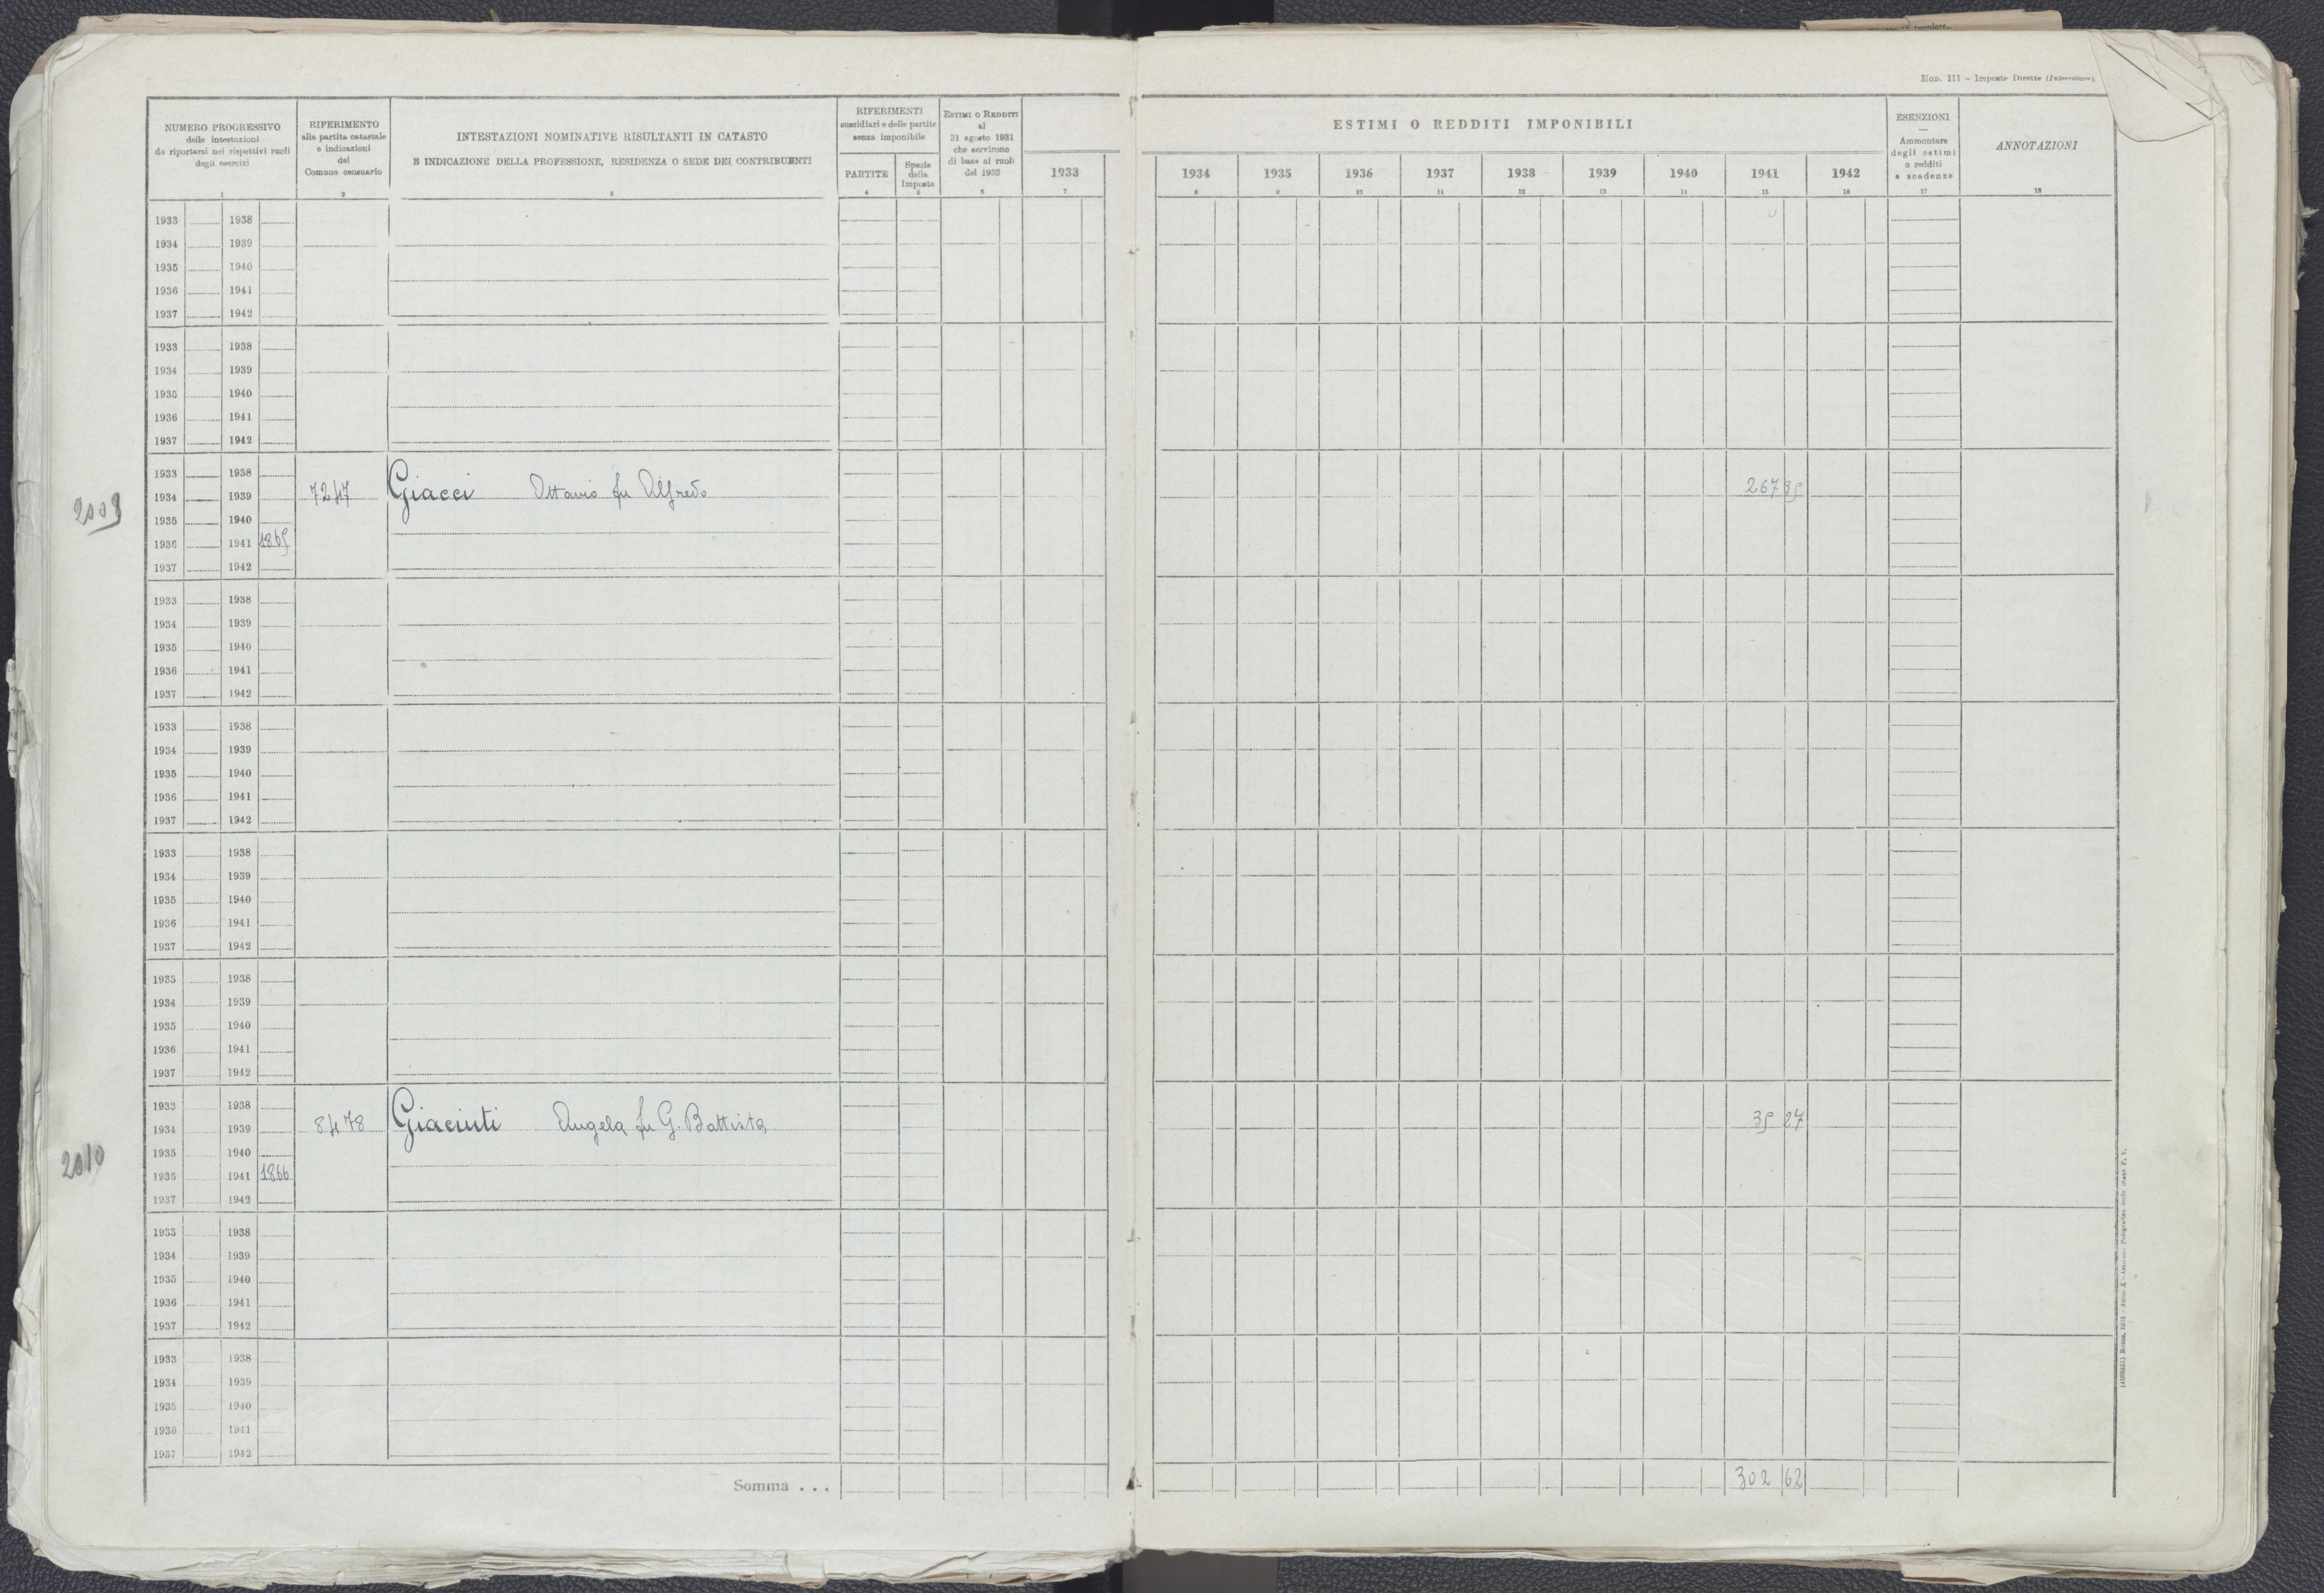 Mod. 111 – Imposte Dirette (Intercalare).
NUMERO PROGRESSIVO
delle intestazioni
da riportarsi nei rispettivi ruoli
degli esercizi
1
RIFERIMENTO
alla partita catastale
e indicazioni
del
Comune censuario
2
INTESTAZIONI NOMINATIVE RISULTANTI IN CATASTO
E INDICAZIONE DELLA PROFESSIONE, RESIDENZA O SEDE DEI CONTRIBUENTI
3
RIFERIMENTI
sussidiari e delle partite
senza imponibile
PARTITE
4
Specie
della
Imposta
5
ESTIMI O REDDITI
al
31 agosto 1931
che servirono
di base ai ruoli
del 1932
6
1933
7
ESTIMI O REDDITI IMPONIBILI
1934 1935 1936 1937 1938 1939 1940 1941 1942
8 9 10 11 12 13 14 15 16
ESENZIONI
—
Ammontare
degli estimi
o redditi
e scadenze
17
ANNOTAZIONI
18
1933 1938
1934 1939
1935 1940
1936 1941
1937 1942
1933 1938
1934 1939
1935 1940
1936 1941
1937 1942
1933 1938
1934 1939 7247 Giacci Ottavio fu Alfredo 267 35
1935 1940
1936 1941 1865
1937 1942
1933 1938
1934 1939
1935 1940
1936 1941
1937 1942
1933 1938
1934 1939
1935 1940
1936 1941
1937 1942
1933 1938
1934 1939
1935 1940
1936 1941
1937 1942
1933 1938
1934 1939
1935 1940
1936 1941
1937 1942
1933 1938
1934 1939 8478 Giacinti Angela fu G. Battista 35 27
1935 1940
2010
1936 1941 1866
1937 1942
1933 1938
1934 1939
1935 1940
1936 1941
1937 1942
1933 1938
1934 1939
1935 1940
1936 1941
1937 1942
Somma . . . 302 62